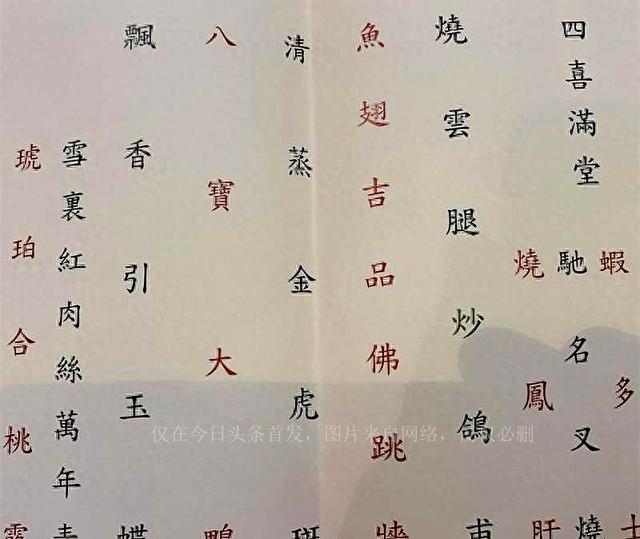 四喜滿堂
蝦多士
馳名叉燒
燒鳳肝
燒雲腿炒鴿甫
魚翅吉品佛跳牆
清蒸金虎斑
八寶大鴨
飄香引玉蝶
雪裏紅肉絲萬年青
琥珀合桃露
仅在今日头条首发，图片来自网络，侵权必删